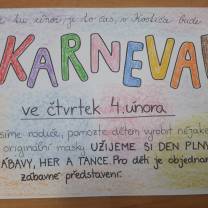 únor je to čas, v Kostica bude
KARNEVA
ve čtvrtek 4.února
síme rodiče, pomozte dětem vyrobit nějaké
originální masky. UŽIJEME SI DEN PLNÝ
ÁBAVY, HER A TANCE. Pro děti je objednané
zábavné představení.